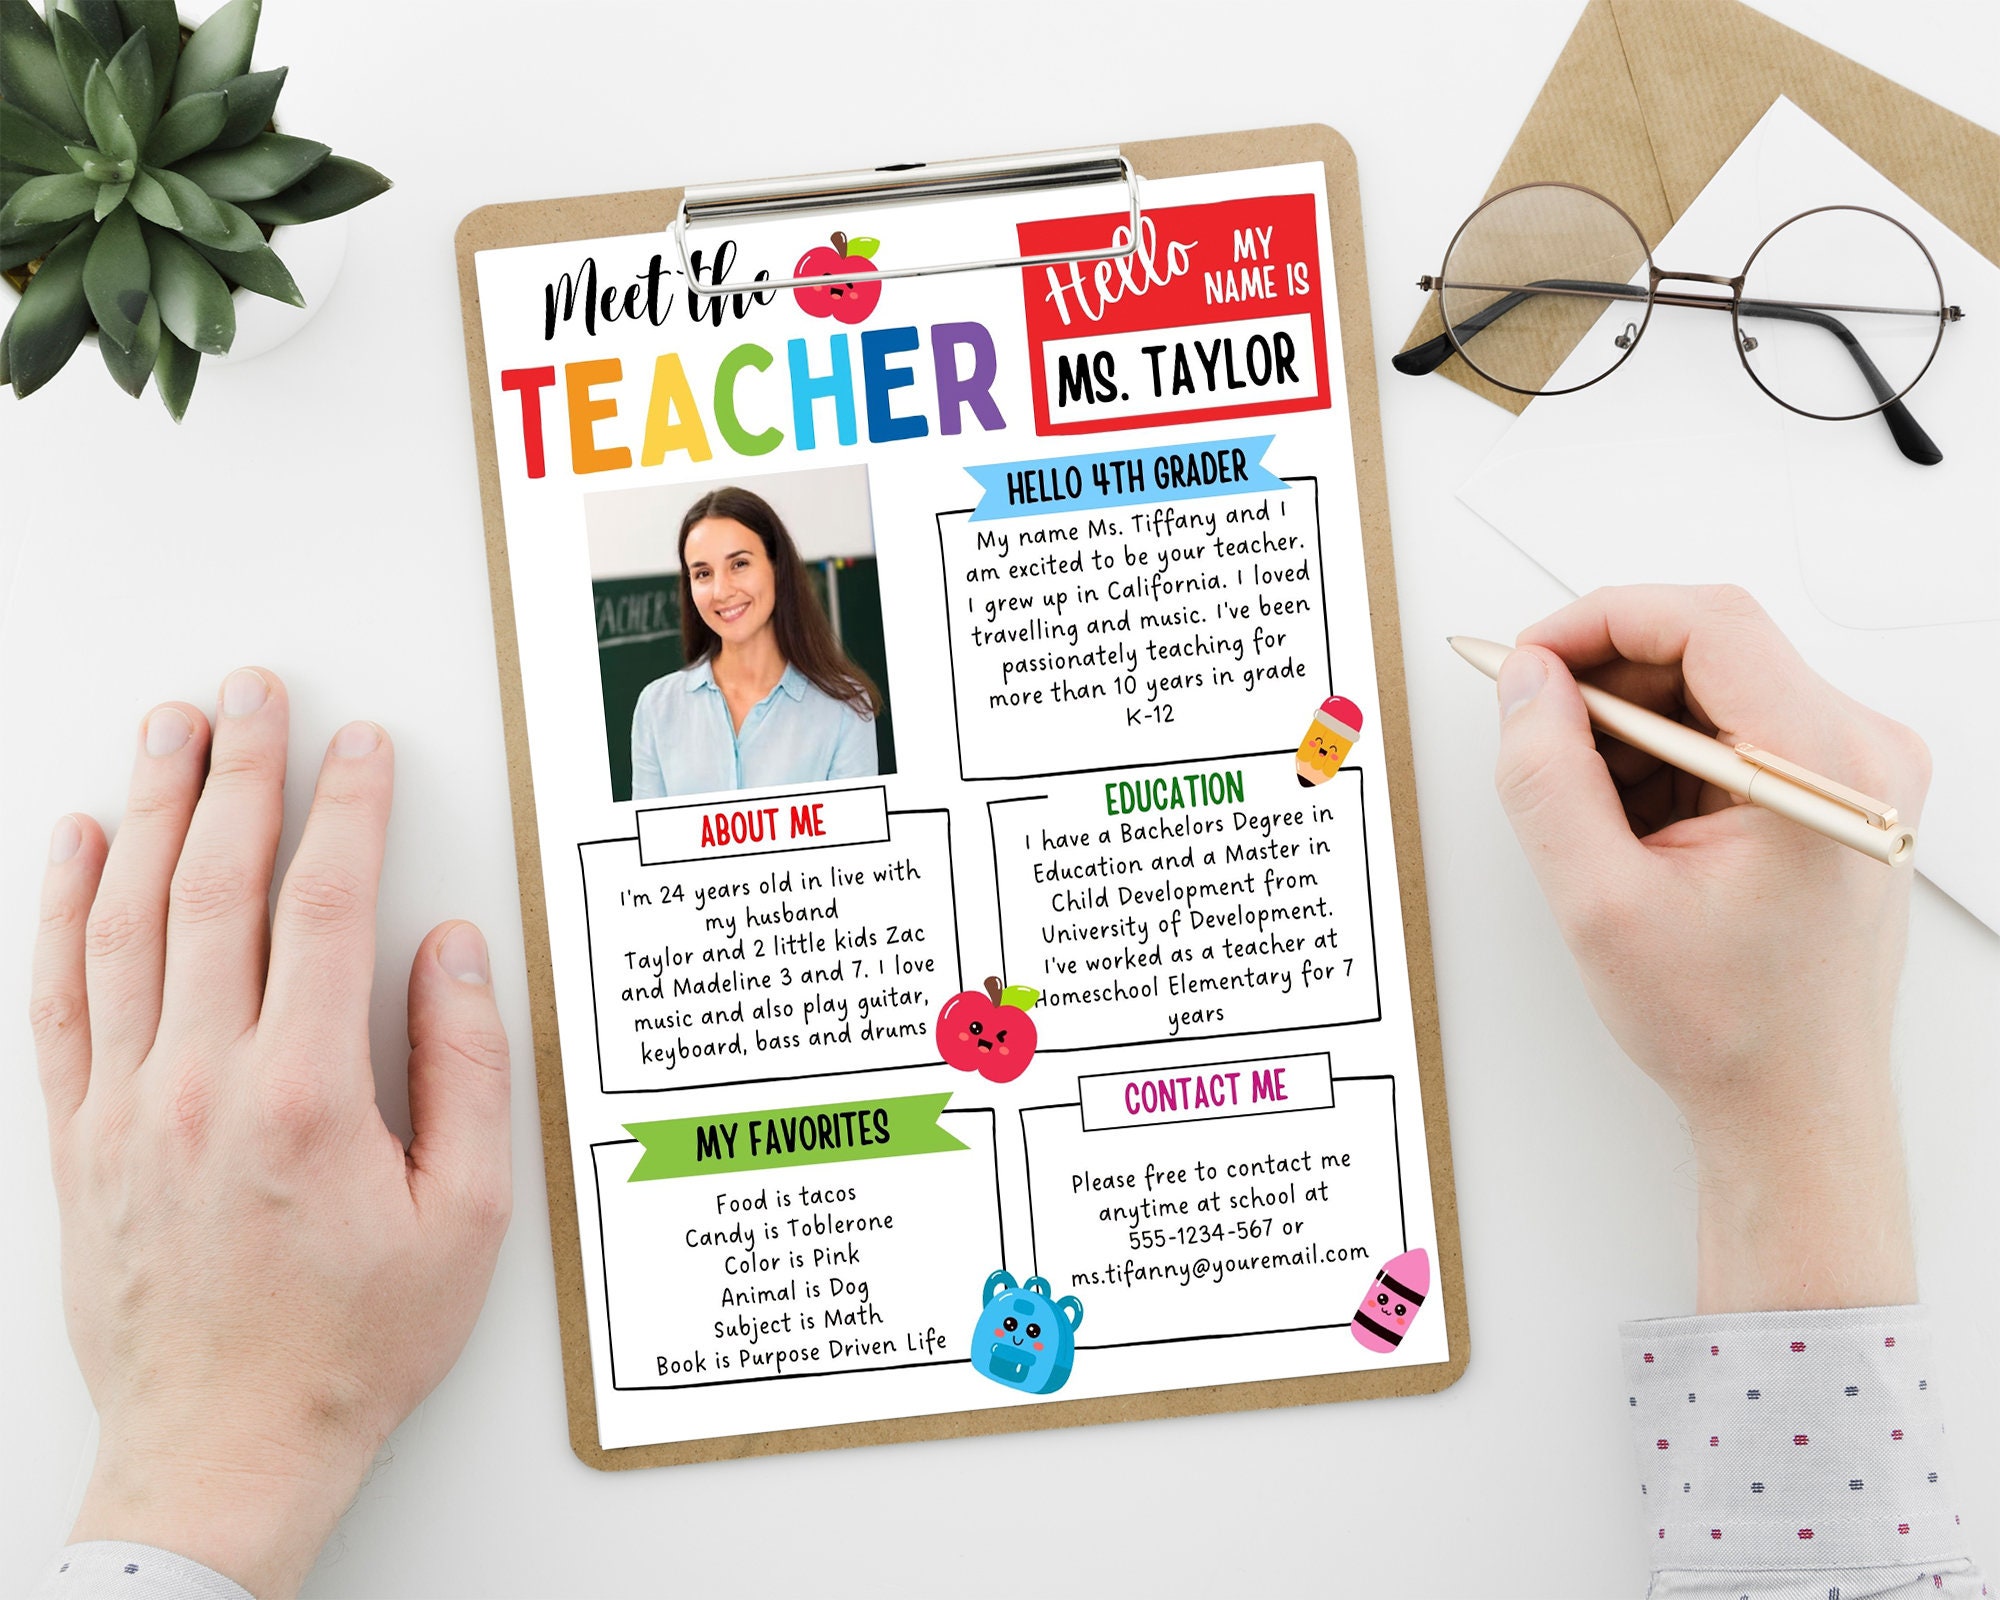 Meet the
TEACHER
Hello
MY
NAME IS
MS. TAYLOR
ACHER'S
HELLO 4TH GRADER
My name Ms. Tiffany and I
am excited to be your teacher.
I grew up in California. I loved
travelling and music. I've been
passionately teaching for
more than 10 years in grade
K-12
ABOUT ME
I'm 24 years old in live with
my husband
Taylor and 2 little kids Zac
and Madeline 3 and 7. I love
music and also play guitar,
keyboard, bass and drums
EDUCATION
I have a Bachelors Degree in
Education and a Master in
Child Development from
University of Development.
I've worked as a teacher at
Homeschool Elementary for 7
years
MY FAVORITES
Food is tacos
Candy is Toblerone
Color is Pink
Animal is Dog
Subject is Math
Book is Purpose Driven Life
CONTACT ME
Please free to contact me
anytime at school at
555-1234-567 or
ms.tifanny@youremail.com